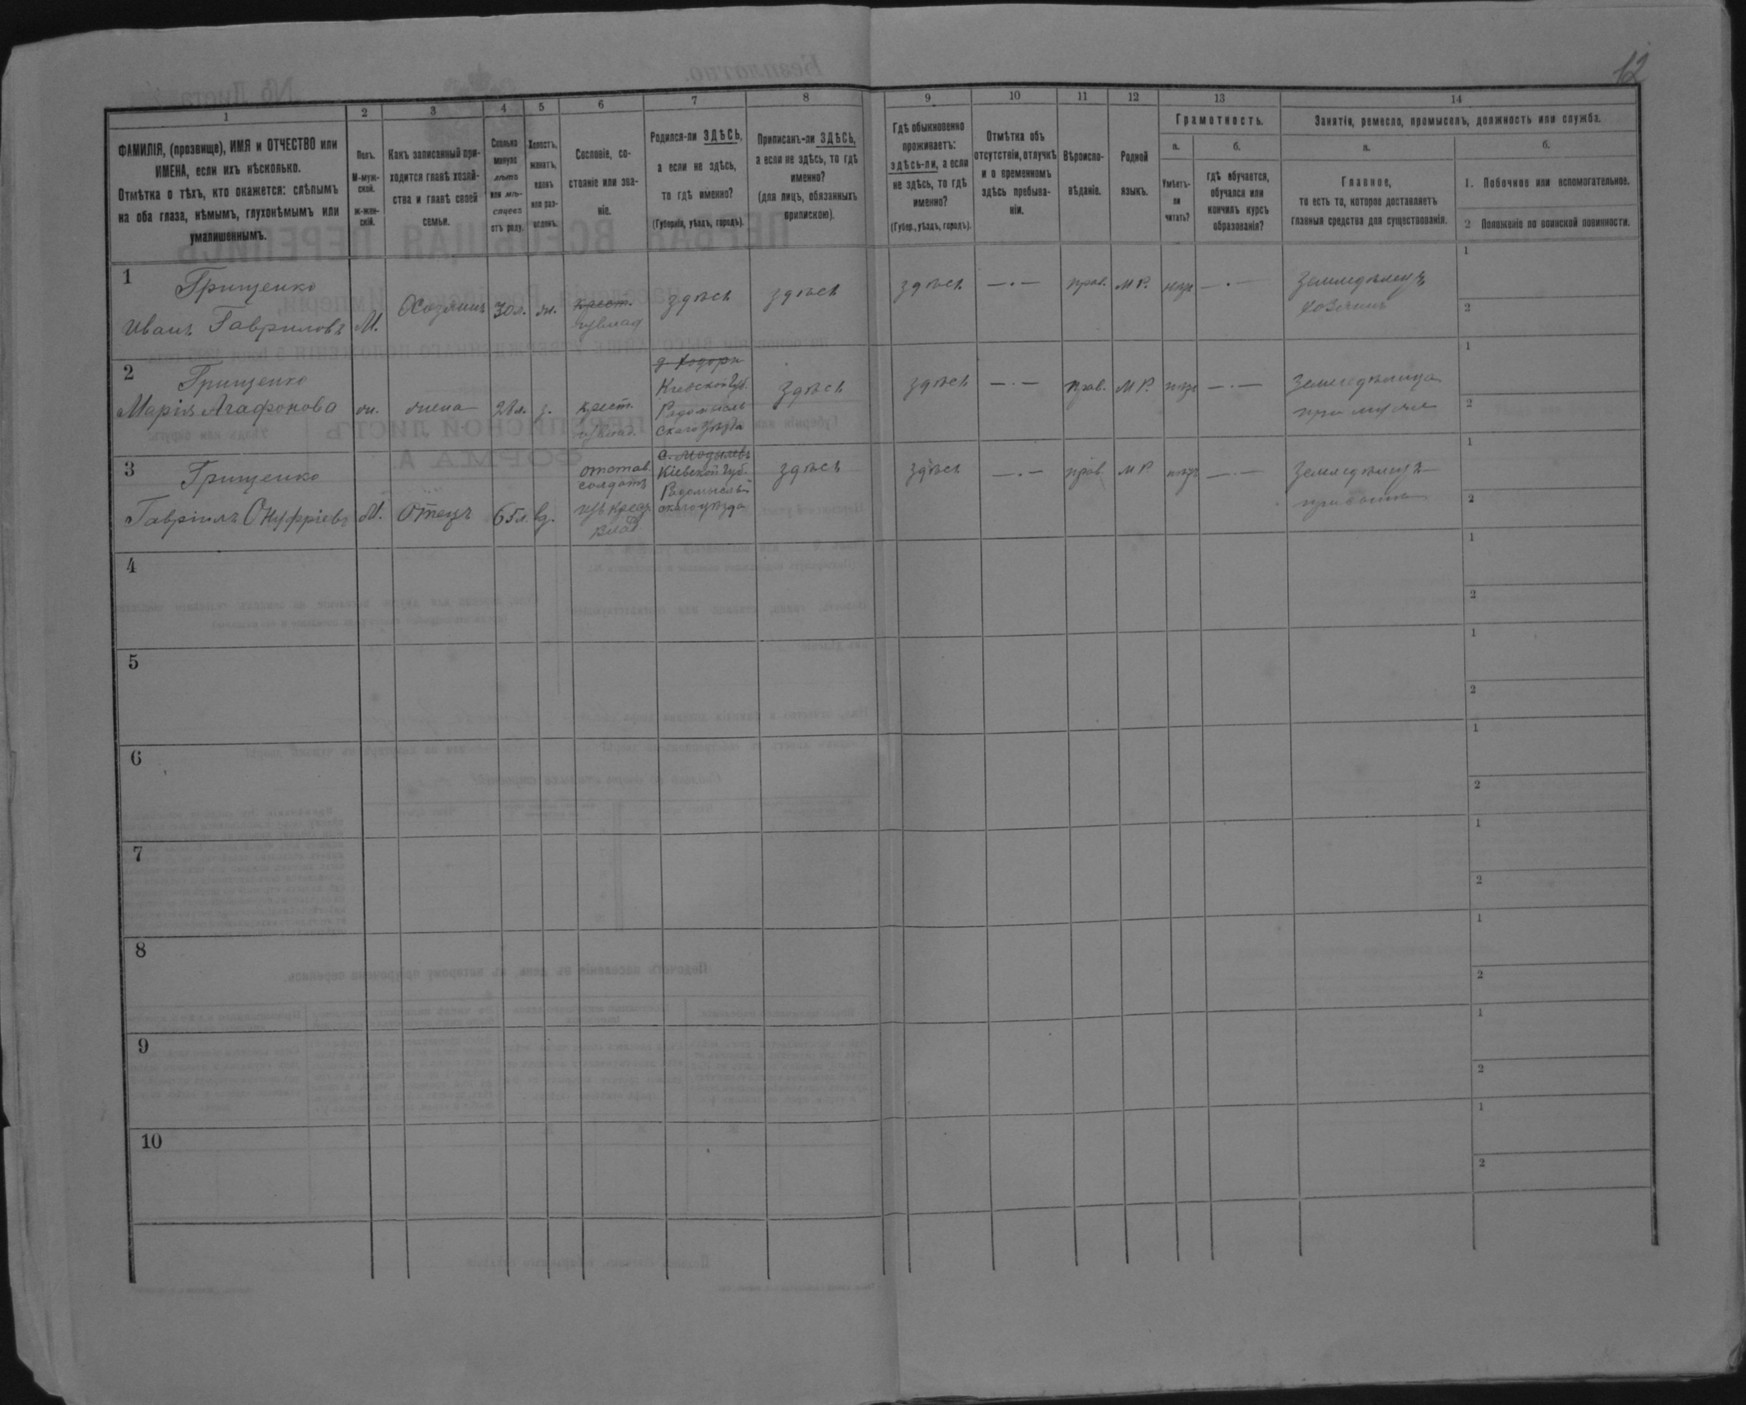 12
1 2 3 4 5 6 7 8 9 10 11 12 13 14
ФАМИЛІЯ, (прозвище), ИМЯ и ОТЧЕСТВО или
ИМЕНА, если ихъ нѣсколько.
Отмѣтка о тѣхъ, кто окажется: слѣпымъ
на оба глаза, нѣмымъ, глухонѣмымъ или
умалишеннымъ.
Полъ.
М-муж-
ской.
ж-жен-
скій.
Какъ записанный при-
ходится главѣ хозяй-
ства и главѣ своей
семьи.
Сколько
минуло
лѣтъ
или мѣ-
сяцевъ
отъ роду.
Холостъ,
женатъ,
вдовъ
или раз-
веденъ.
Сословіе, со-
стояніе или зва-
ніе.
Родился-ли ЗДѢСЬ,
а если не здѣсь,
то гдѣ именно?
(Губернія, уѣздъ, городъ).
Приписанъ-ли ЗДѢСЬ,
а если не здѣсь, то гдѣ
именно?
(для лицъ, обязанныхъ
припискою).
Гдѣ обыкновенно
проживаетъ:
здѣсь-ли, а если
не здѣсь, то гдѣ
именно?
(Губер., уѣздъ, городъ).
Отмѣтка объ
отсутствіи, отлучкѣ
и о временномъ
здѣсь пребыва-
ніи.
Вѣроиспо-
вѣданіе.
Родной
языкъ.
Грамотность.
а.
Умѣетъ-
ли
читать?
б.
гдѣ обучается,
обучался или
кончилъ курсъ
образованія?
Занятіе, ремесло, промыселъ, должность или служба.
а.
Главное,
то есть то, которое доставляетъ
главныя средства для существованія.
б.
1. Побочное или вспомогательное.
2 Положеніе по воинской повинности.
1
Грищенко
Иванъ Гавриловъ М. Хозяинъ 30 л. ж. крест. здѣсь здѣсь здѣсь —·— прав. М Р. —·— Земледѣлецъ
Хозяинъ
1
2
2
Грищенко
Марія Агафонова ж. жена 28 л. з. крест. Кіевской Губ.
Радомысль
скаго Уѣзда здѣсь здѣсь —·— прав. М Р. —·— Земледѣлица
при мужѣ
1
2
3
Грищенко
Гавріилъ Онуфріевъ М. Отецъ 65 л. вд. отстав.
солдатъ
изъ крест.
Кіевской Губ.
Радомысль
скаго уѣзда здѣсь здѣсь —·— прав М Р. —·— Земледѣлецъ
1
2
4
1
2
5
1
2
6
1
2
7
1
2
8
1
2
9
1
2
10
1
2